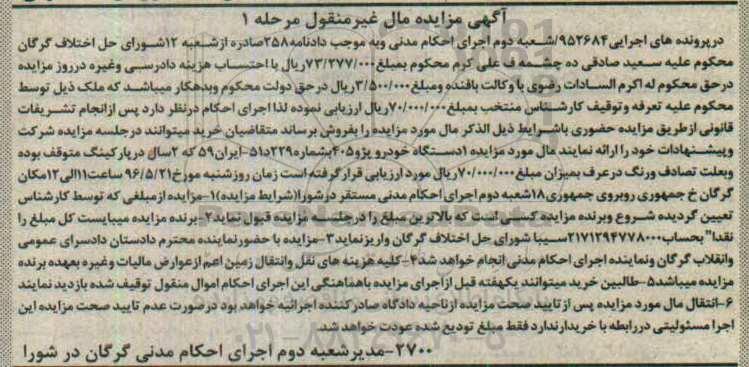 آگهی مزایده مال غیرمنقول مرحله ۱
درپرونده های اجرایی ۹۵۲۶۸۴/شعبه دوم اجرای احکام مدنی وبه موجب دادنامه ۲۵۸صادره ازشعبه ۱۲شورای حل اختلاف گرگان
محکوم علیه سعید صادقی ده چشمه ف علی کرم محکوم بمبلغ۷۳/۲۷۷/۰۰۰ریال با احتساب هزینه دادرسی وغیره درروز مزایده
درحق محکوم له اکرم السادات رضوی با وکالت بافنده ومبلغ۳/۵۰۰/۰۰۰ریال درحق دولت محکوم وبدهکار میباشد که ملک ذیل توسط
محکوم علیه تعرفه وتوقیف کارشناس منتخب بمبلغ۷۰/۰۰۰/۰۰۰ریال ارزیابی نموده لذا اجرای احکام درنظر دارد پس ازانجام تشریفات
قانونی ازطریق مزایده حضوری باشرایط ذیل الذکر مال مورد مزایده را بفروش برساند متقاضیان خرید میتوانند درجلسه مزایده شرکت
وپیشنهادات خود را ارائه نمایند مال مورد مزایده ۱دستگاه خودرو پژو۴۰۵بشماره۲۲۹د۵۱-ایران۵۹ که ۲سال درپارکینگ متوقف بوده
وبعلت تصادف ورنگ درعرف بمیزان مبلغ۷۰/۰۰۰/۰۰۰ریال مورد ارزیابی قرارگرفته است زمان روزشنبه مورخ۹۶/۵/۲۱ ساعت۱۱الی۱۲مکان
گرگان خ جمهوری روبروی جمهوری۱۸شعبه دوم اجرای احکام مدنی مستقر درشورا(شرایط مزایده)۱-مزایده ازمبلغی که توسط کارشناس
تعیین گردیده شروع وبرنده مزایده کسی است که بالاترین مبلغ را درجلسه مزایده قبول نماید۲-برنده مزایده میبایست کل مبلغ را
نقدا" بحساب۲۱۷۱۲۹۴۷۷۸۰۰۰سیبا شورای حل اختلاف گرگان واریزنماید۳-مزایده با حضورنماینده محترم دادستان دادسرای عمومی
وانقلاب گرگان ونماینده اجرای احکام مدنی انجام خواهد شد۴-کلیه هزینه های نقل وانتقال زمین اعم ازعوارض مالیات وغیره بعهده برنده
مزایده میباشد۵-طالبین خرید میتوانند یکهفته قبل ازاجرای مزایده باهماهنگی این اجرای احکام اموال منقول توقیف شده بازدید نمایند
۶-انتقال مال مورد مزایده پس از تایید صحت مزایده ازناحیه دادگاه صادرکننده اجرائیه خواهد بود درصورت عدم تایید صحت مزایده این
اجرا مسئولیتی دررابطه با خریدارندارد فقط مبلغ تودیع شده عودت خواهد شد
۲۷۰۰-مدیرشعبه دوم اجرای احکام مدنی گرگان در شورا